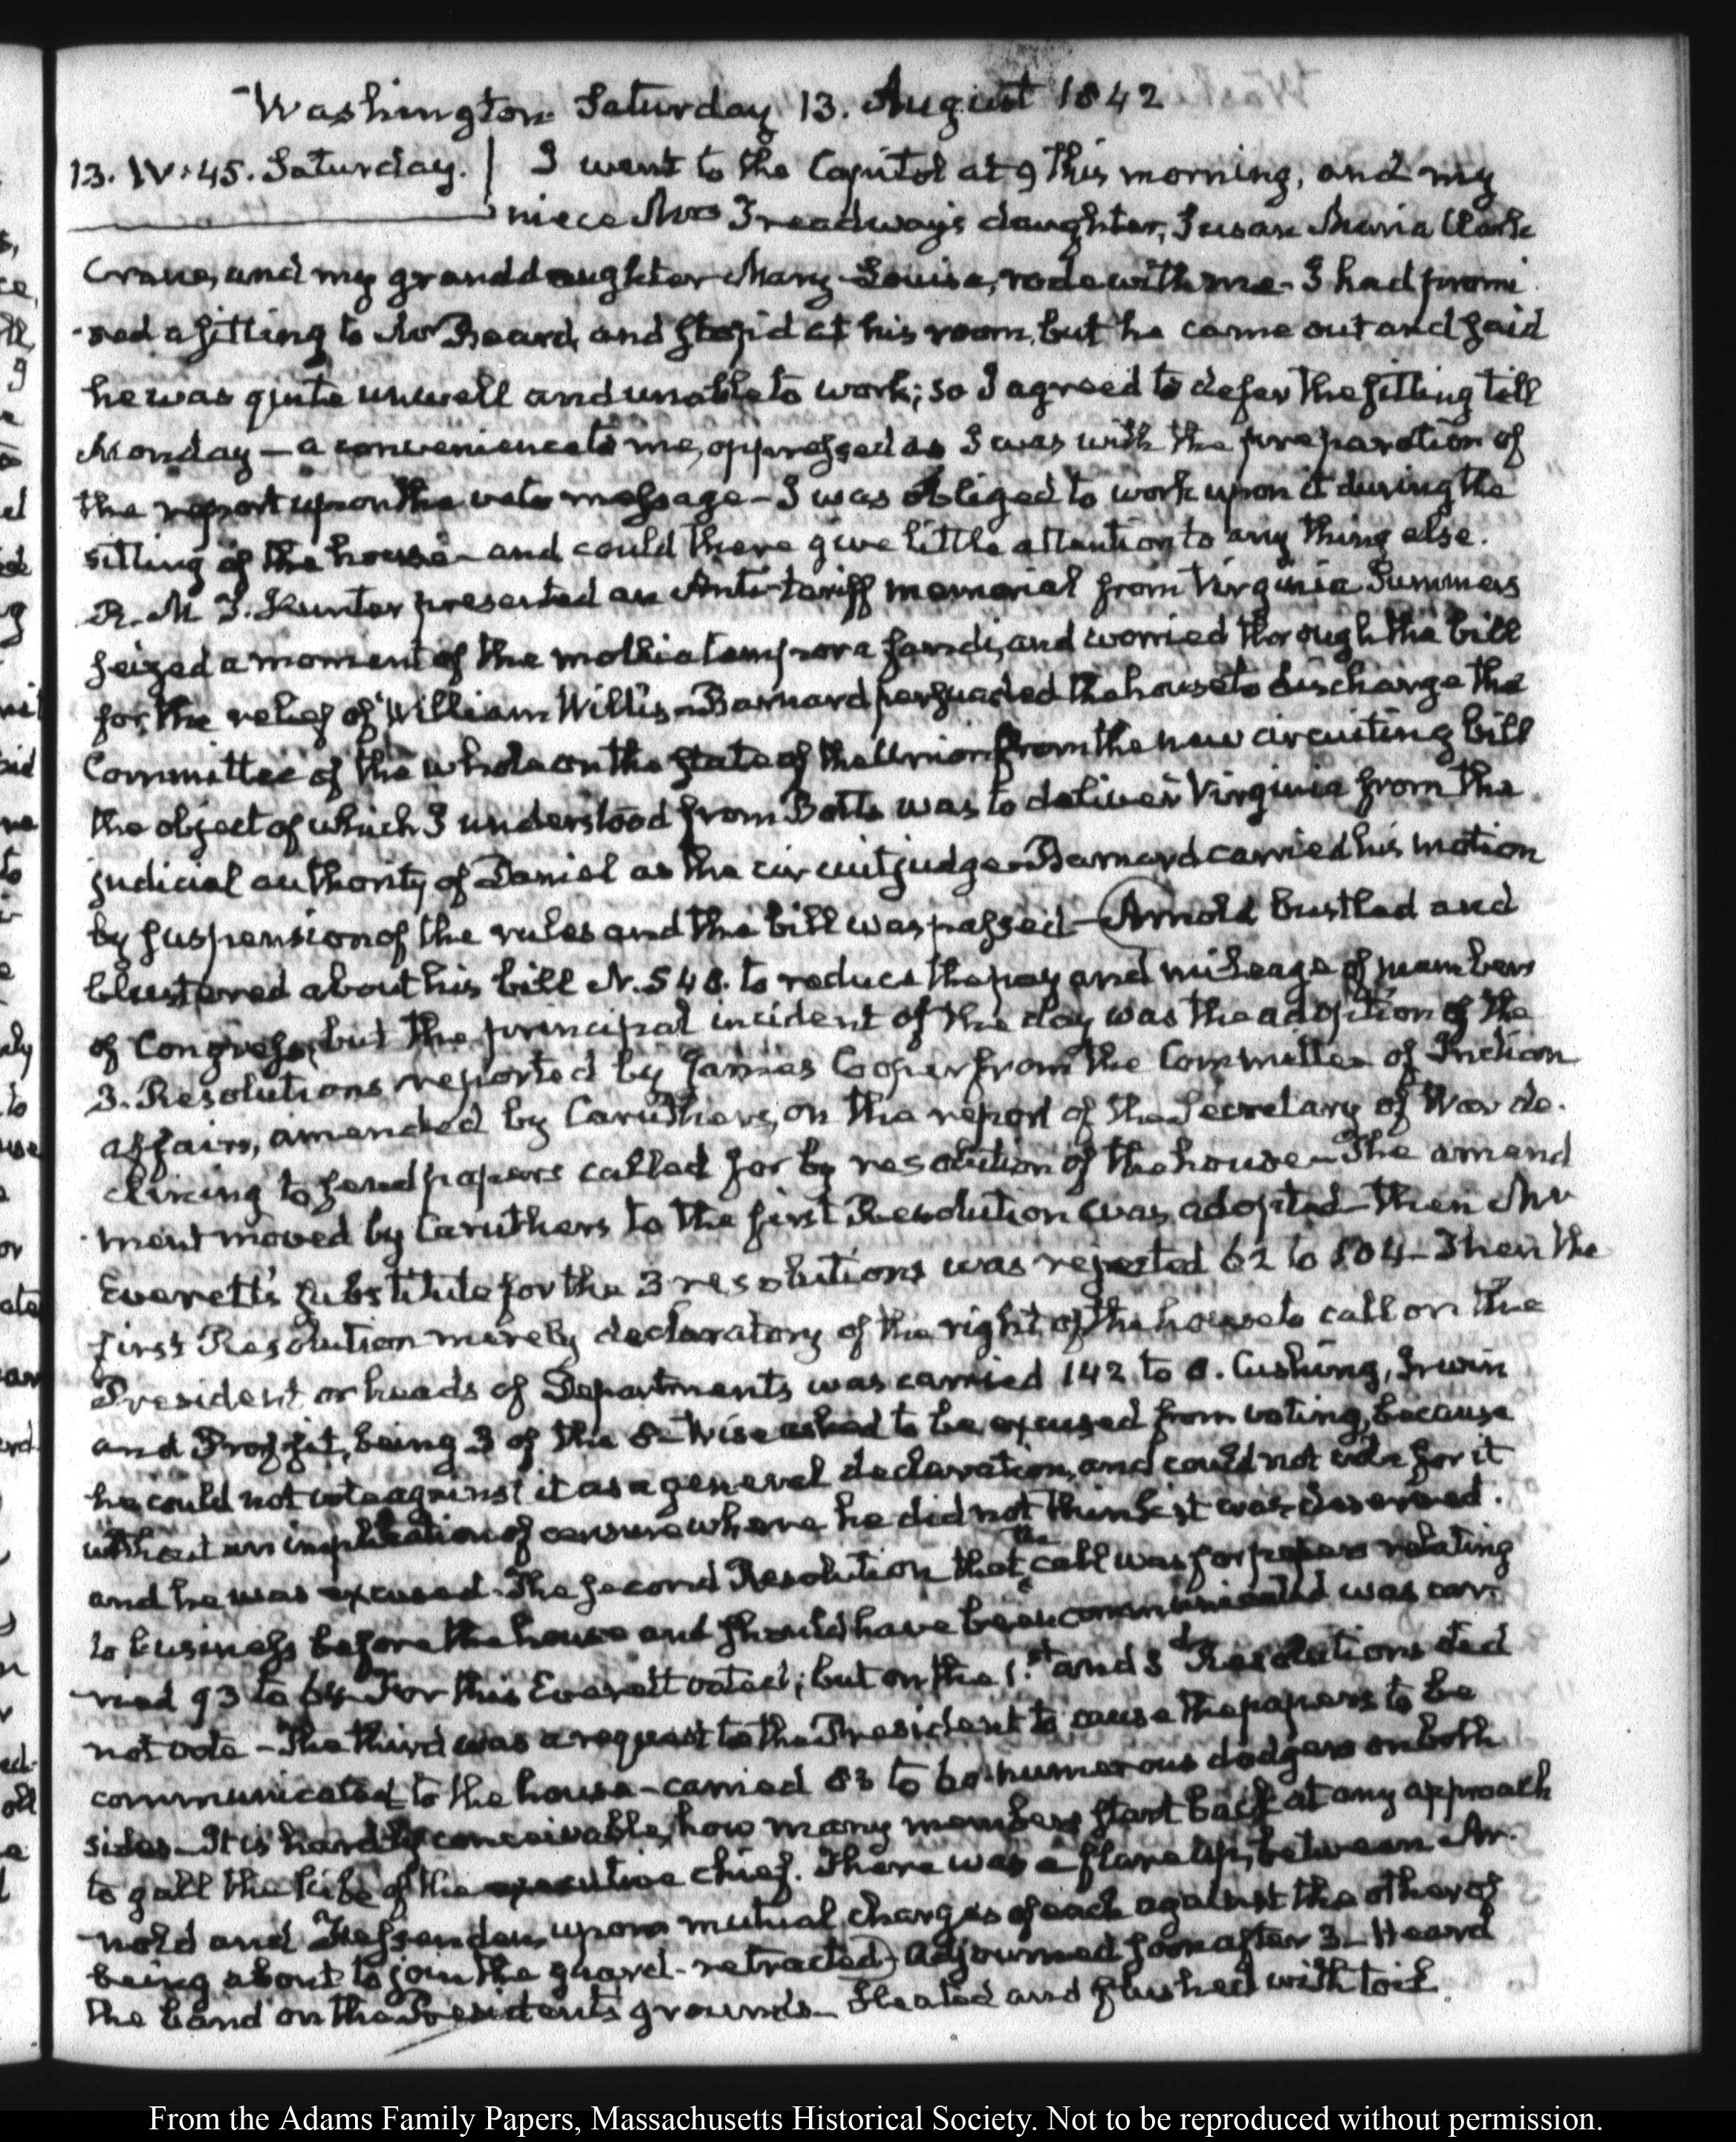 Washington Saturday 13. August 1842
13. IV. 45. Saturday. | I went to the Capitol at 9 this morning, and my
niece Mrs Treadway's daughter, Susan Maria Clark
Crane, and my granddaughter Mary-Louisa, rode with me. I had promi
-sed a sitting to Mr Beard, and stop'd at his room, but he came out and said
he was quite unwell and unable to work; so I agreed to defer the sitting till
Monday — a convenience to me, oppressed as I was with the preparation of
the report upon the veto message — I was obliged to work upon it during the
sitting of the house — and could there give little attention to any thing else.
R. M. T. Hunter presented an Anti-tariff memorial from Virginia Summers
seized a moment of the mollia tempora fandi, and worried thorough the bill
for the relief of William Willis — Barnard persuaded the house to discharge the
Committee of the whole on the state of the Union from the new circuiting bill
the object of which I understood from Botts was to deliver Virginia from the
judicial authority of Daniel as the circuit judge — Barnard carried his motion
by suspension of the rules and the bill was passed — Arnold bustled and
blustered about his bill N. 548. to reduce the pay and mileage of members
of Congress, but the principal incident of the day was the adoption of the
3. Resolutions reported by James Cooper from the Committee of Indian
affairs, amended by Caruthers, on the report of the Secretary of War de-
clining to send papers called for by resolution of the house — The amend
-ment moved by Caruthers to the first Resolution was adopted — then Mr
Everett's substitute for the 3 resolutions was rejected 62 to 104 — Then the
first Resolution merely declaratory of the right of the house to call on the
President or heads of Departments was carried 142 to 8. Cushing, Irwin
and Proffit, being 3 of the 8 — Wise asked to be excused from voting, because
he could not vote against it as a general declaration, and could not vote for it
without an implication of censure where he did not think it was deserved.
and he was excused. The second Resolution that the call was for papers relating
to business before the house and should have been communicated was car-
-ried 93 to 64. For this Everett voted; but on the 1.st and 3d Resolutions did
not vote — The third was a request to the President to cause the papers to be
communicated to the house — carried 83 to 60. numerous dodgers on both
sides — It is hardly conceivable, how many members start back at any approach
to gall the kibe of the executive chief. There was a flare up, between Ar-
-nold and Fessenden, upon mutual charges of each against the other of
being about to join the guard — retracted) adjourned soon after 3 — Heard
the band on the President's grounds — Heated and flushed with toil.
From the Adams Family Papers, Massachusetts Historical Society. Not to be reproduced without permission.